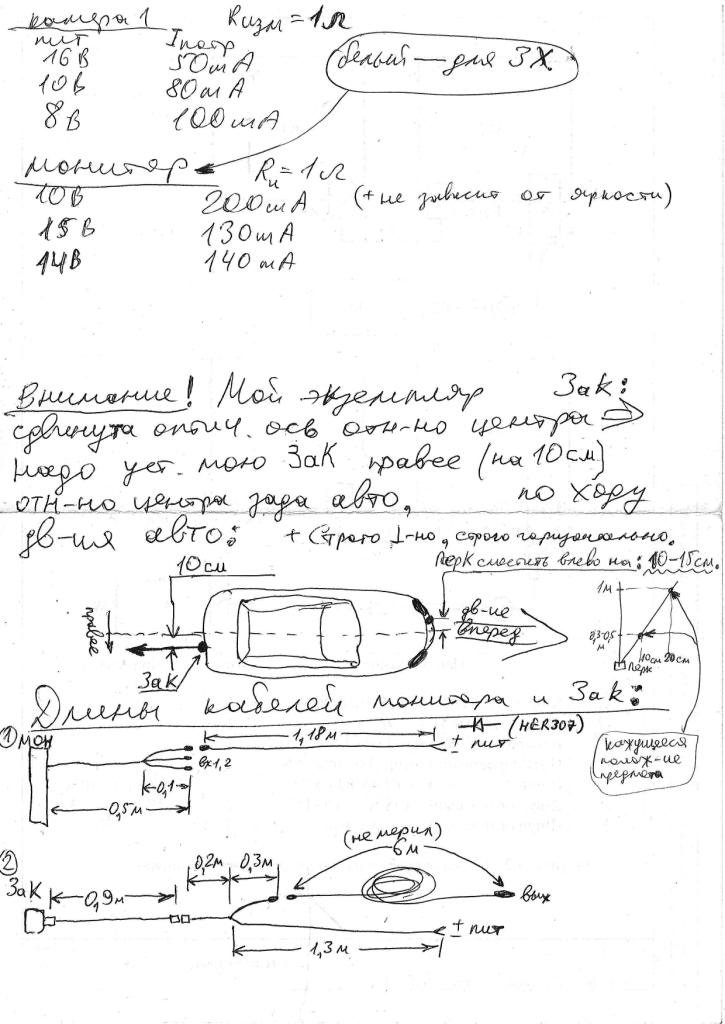 камера 1 Rизм = 1Ω
пит Iпотр
16В 50mA
10В 80mA
8В 100mA
белый — для ЗХ
монитор Rи = 1Ω
10В 200mA (+ не зависит от яркости)
15В 130mA
14В 140mA
Внимание! Мой экземпляр ЗаК:
сдвинута оптич. ось отн-но центра ⇒
надо уст. мою ЗаК правее (на 10см)
отн-но центра зада авто, по ходу
дв-ия авто: + Строго ⊥-но, строго горизонтально.
ПерК сместить влево на: 10-15см.
10см
правее
ЗаК
дв-ие
вперед
1м
0,3-0,5
м
10см 20см
ПерК
Длины кабелей монитора и ЗаК:
кажущееся
полож-ие
предмета
① МОН
1,18м
(HER307)
± пит
вх1,2
0,1
0,5м
②
ЗаК
0,9м
0,2м
0,3м
(не мерил)
6м
вых
± пит
1,3м